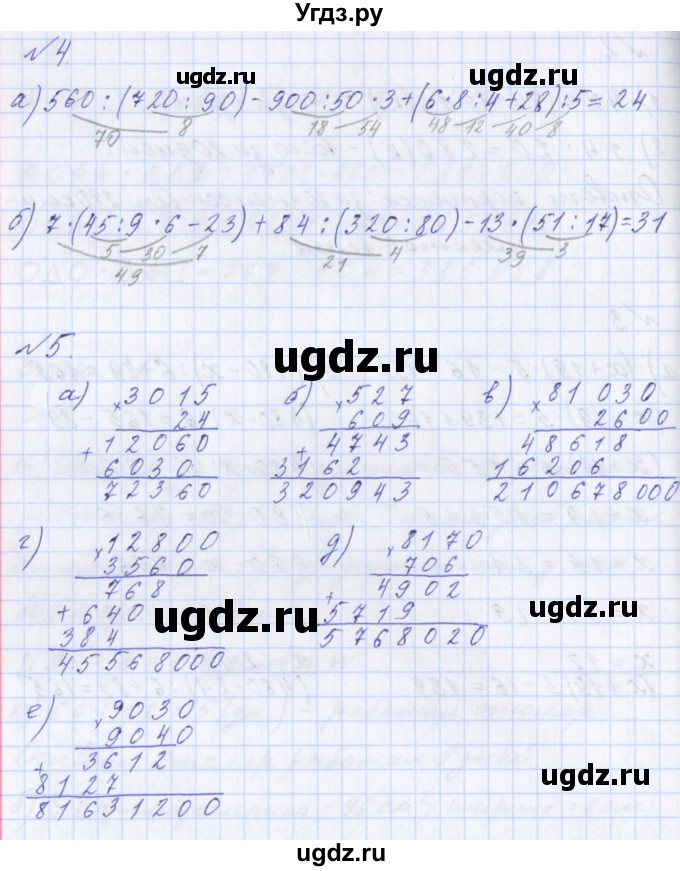 Угдз.ру
N4.
ugdz.ru
ugdz.ru
а) 560:(720:90)-900:50·3+(6·8:4+28):5=24
70 8 18 54 48 12 40 8
б) 7·(45:9·6-23)+84:(320:80)-13·(51:17)=31
5 30 7 21 4 39 3
49
N5.
ugdz.ru
а) ×3015
24
+12060
6030
72360
б) ×527
609
+4743
3162
320943
в) ×81030
2600
48618
16206
210678000
г) ×12800
3560
768
+640
384
45568000
ugdz.ru
д) ×8170
706
+4902
5719
5768020
ugdz.ru
е) ×9030
9040
+3612
8127
81631200
ugdz.ru
ugdz.ru